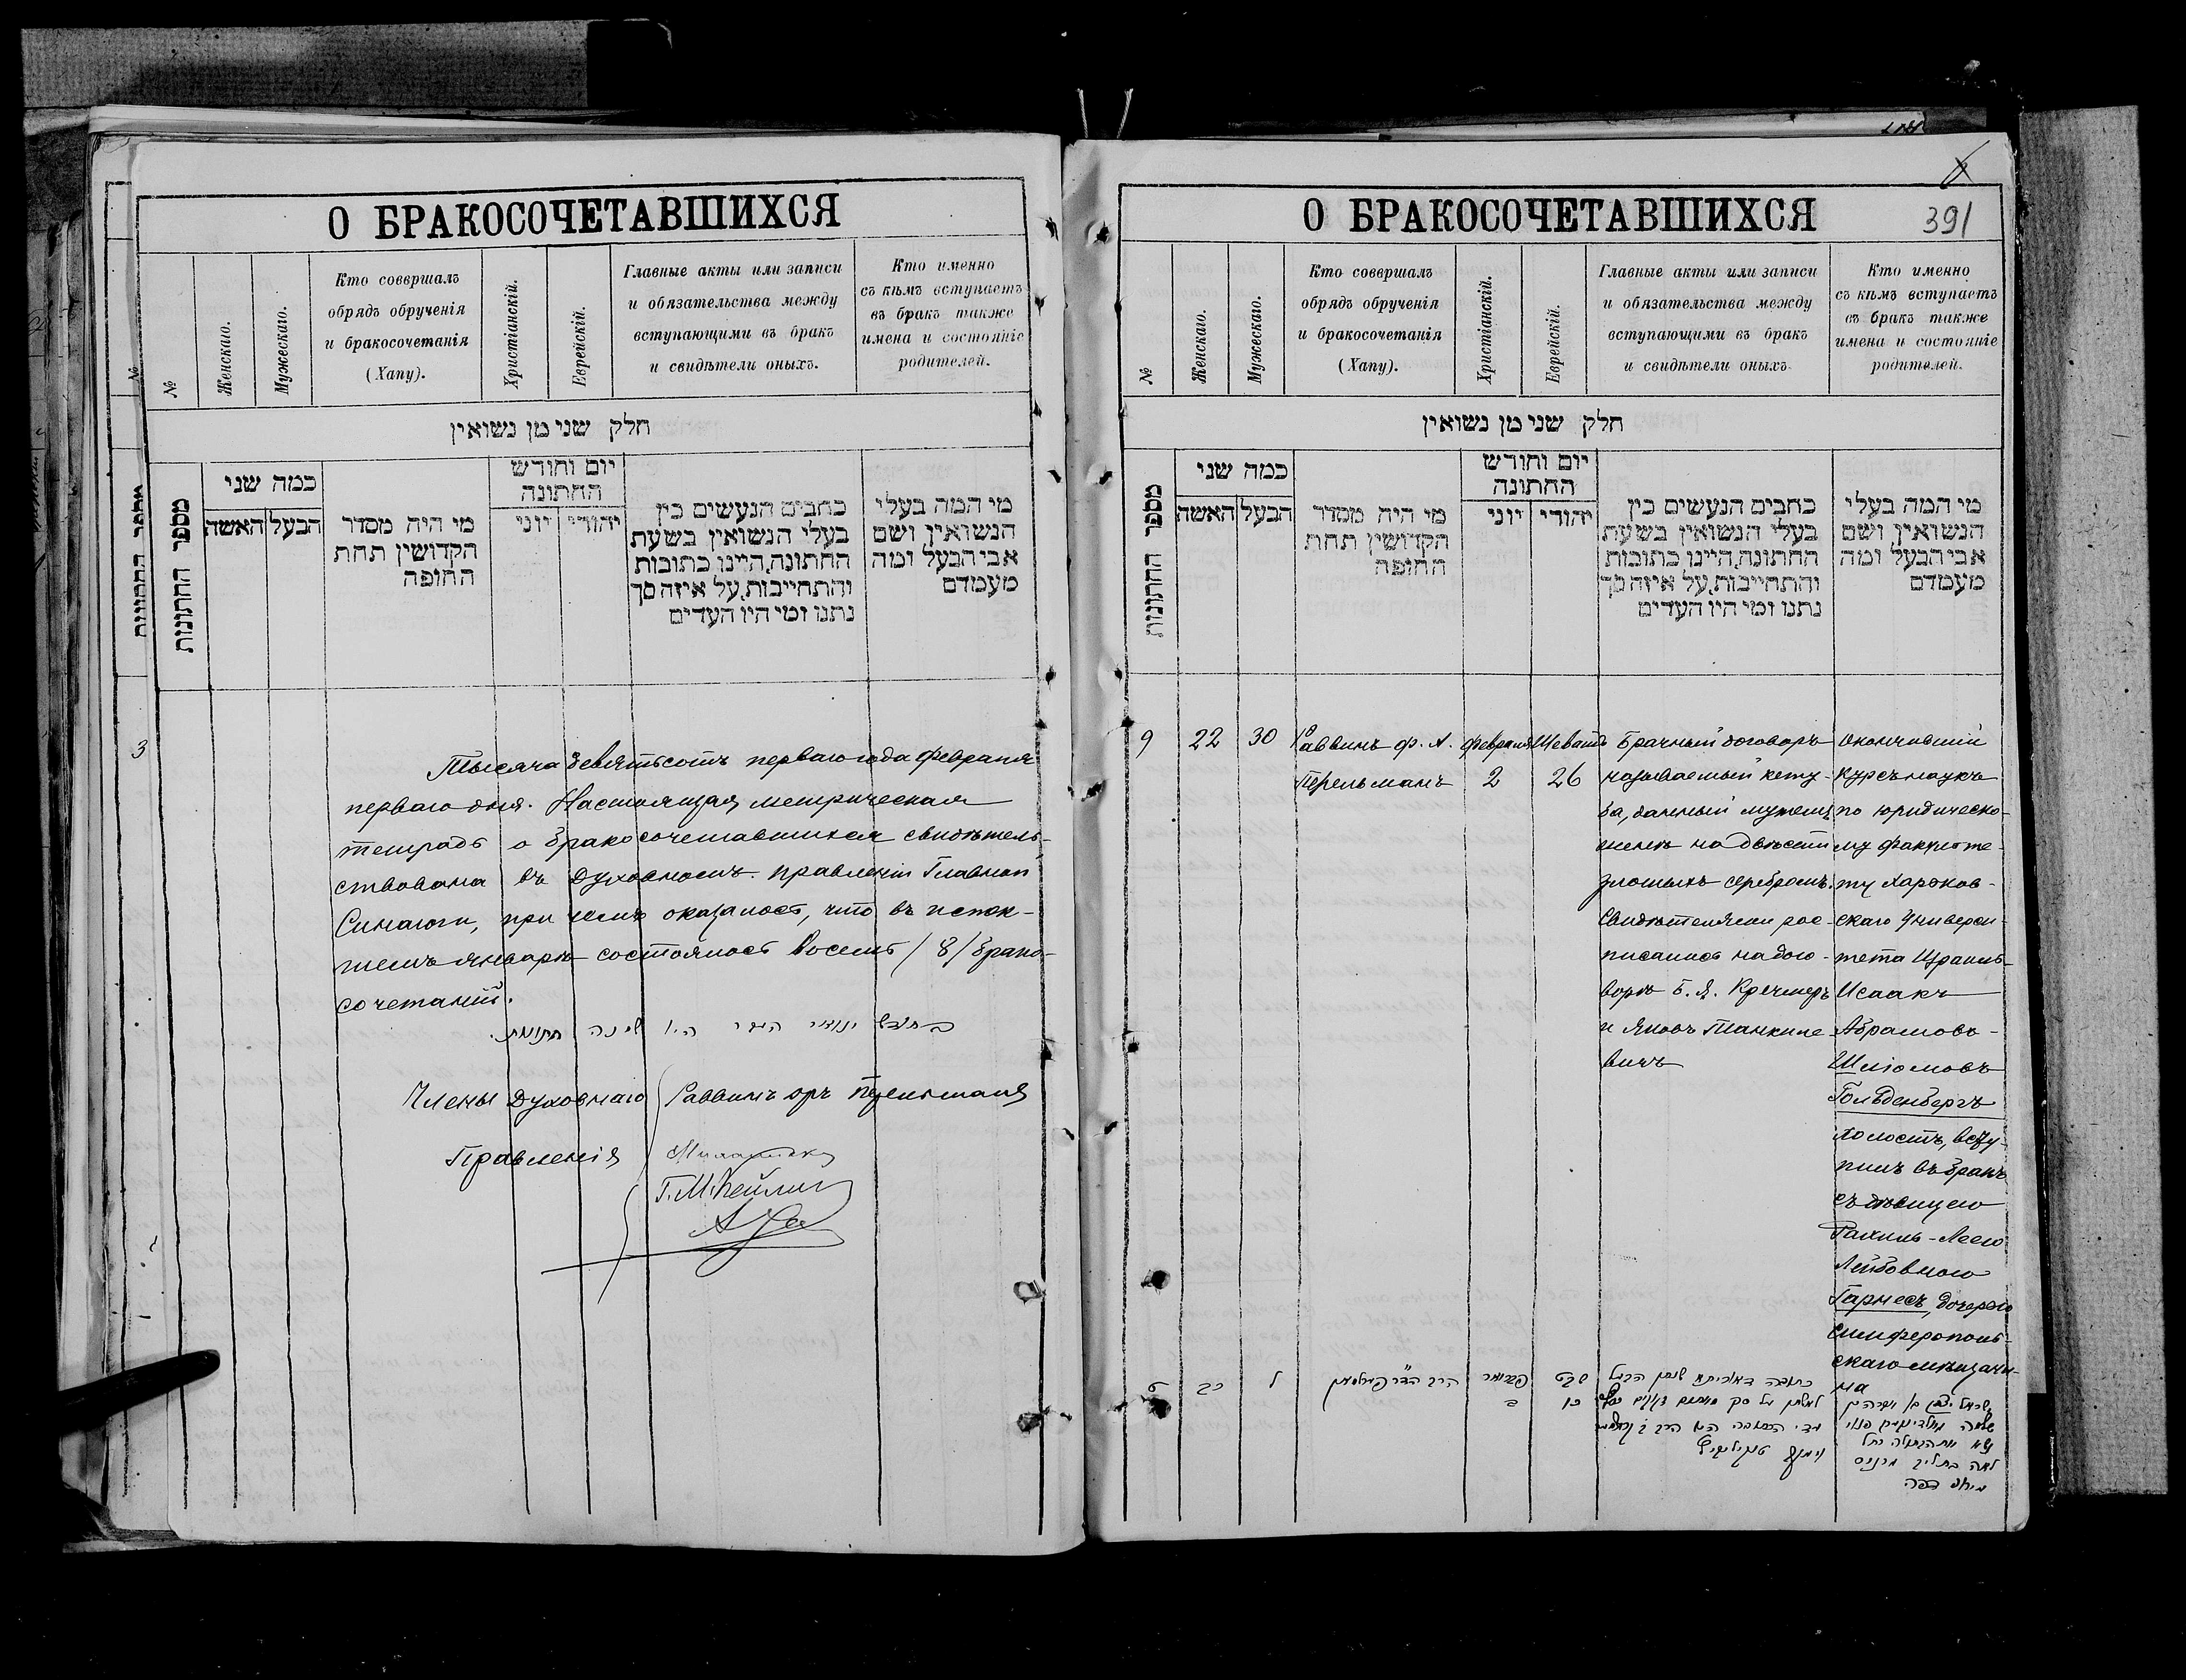 О БРАКОСОЧЕТАВШИХСЯ
№
№
Женскаго.
Мужескаго.
Кто совершалъ
обрядъ обрученія
и бракосочетанія
(Хапу).
Христіанскій.
Еврейскій.
Главные акты или записи
и обязательства между
вступающими въ бракъ
и свидѣтели оныхъ.
Кто именно
съ кѣмъ вступаетъ
въ бракъ также
имена и состояніе
родителей.
חלק שני מן נשואין
מספר החתונות
כמה שני
האשה
הבעל
מי היה מסדר
הקדושין תחת
החופה
יום וחודש
החתונה
יוני
יהודי
כתבים הנעשים בין
בעלי הנשואין בשעת
החתונה, היינו כתובות
והתחייבות, על איזה סך
נתנו ומי היו העדים
מי המה בעלי
הנשואין, ושם
אבי הבעל ומה
מעמדם
3
Тысяча девятьсотъ перваго года февраля
перваго дня. Настоящая метрическая
тетрадь о бракосочетавшихся свидѣтель-
ствована въ Духовномъ Правленіи Главной
Синагоги, при чемъ оказалось, что въ истек-
шемъ январѣ состоялось восемь /8/ брако-
сочетаній.
Члены Духовнаго
Правленія
Раввинъ Перельманъ
О БРАКОСОЧЕТАВШИХСЯ
391
№
Женскаго.
Мужескаго.
Кто совершалъ
обрядъ обрученія
и бракосочетанія
(Хапу).
Христіанскій.
Еврейскій.
Главные акты или записи
и обязательства между
вступающими въ бракъ
и свидѣтели оныхъ
Кто именно
съ кѣмъ вступаетъ
въ бракъ также
имена и состояніе
родителей.
חלק שני מן נשואין
מספר החתונות
כמה שני
האשה
הבעל
מי היה מסדר
הקדושין תחת
החופה
יום וחודש
החתונה
יוני
יהודי
כתבים הנעשים בין
בעלי הנשואין בשעת
החתונה, היינו כתובות
והתחייבות, על איזה סך
נתנו ומי היו העדים
מי המה בעלי
הנשואין, ושם
אבי הבעל ומה
מעמדם
9
22
30
Раввинъ Ф. А.
Перельманъ
Февраля
2
Шеватъ
26
Брачный договоръ
называемый кету-
ба, данный мужемъ
женѣ на двѣсти
злотыхъ серебромъ.
Свидѣтелями рос-
писались на дого-
ворѣ Б. Я. Кречмеръ
и Яковъ Танкиле-
вичъ
Окончившій
курсъ наукъ
по юридическо-
му факульте-
ту Харьков-
скаго Универси-
тета Израиль-
Исаакъ
Абрамовъ-
Шліомовъ
Гольденбергъ
холостъ, всту-
пилъ въ бракъ
съ дѣвицею
Рахиль-Леею
Лейбовною
Гарнесъ, дочерью
симферополь-
скаго мѣщани-
на
ט
כב
ל